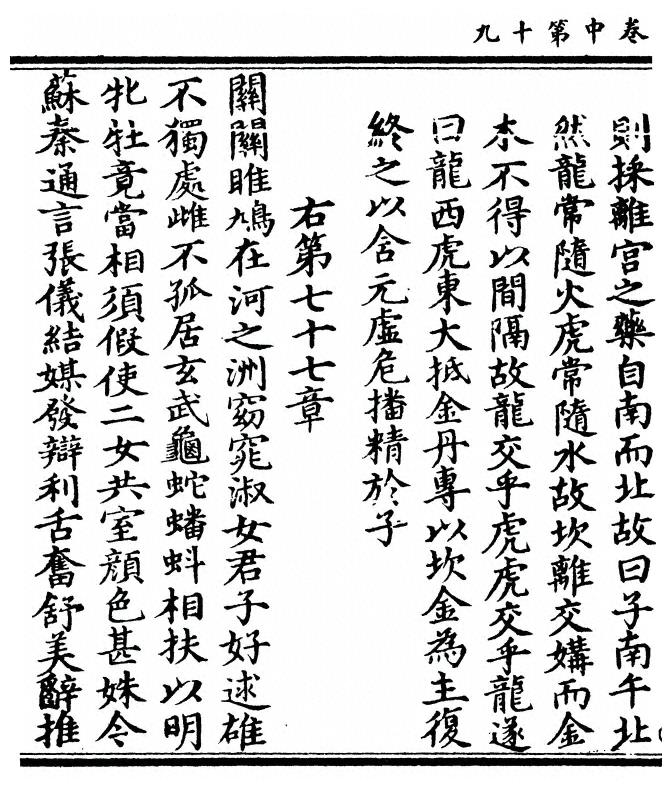 卷中第十九
則採離宮之藥自南而北故曰子南午北
然龍常隨火虎常隨水故坎離交媾而金
木不得以間隔故龍交乎虎虎交乎龍遂
曰龍西虎東大抵金丹專以坎金為主復
終之以含元虛危播精於子
右第七十七章
關關雎鳩在河之洲窈窕淑女君子好逑雄
不獨處雌不孤居玄武龜蛇蟠蚪相扶以明
牝牡竟當相須假使二女共室顏色甚姝令
蘇秦通言張儀結媒發辯利舌奮舒美辭推